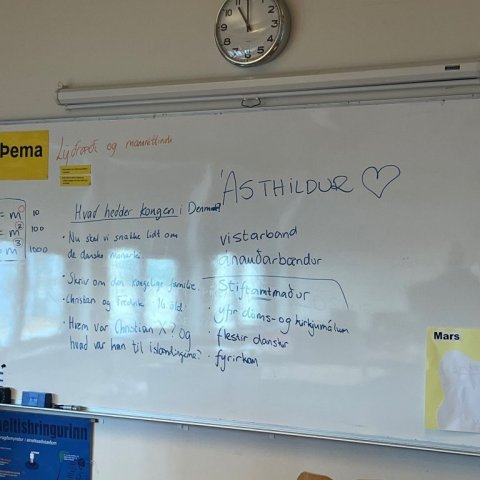 Þema
Lýðræði og mannréttindi
ÁSTHILDUR ♡
= m 10
= m² 100
= m³ 1000
Hvad hedder kongen i Danmark?
• Nu skal vi snakke lidt om
de danske monarki.
• Skriv om den kongelige familie.
• Christian og Fredrik - 16 öld
• Hvem var Christian X? og
hvad var han til islændingene?
vistarband
ánauðarbændur
Stiftamtmaður
• yfir dóms- og kirkjumálum
• flestir danskir
• fyrirkom
Mars